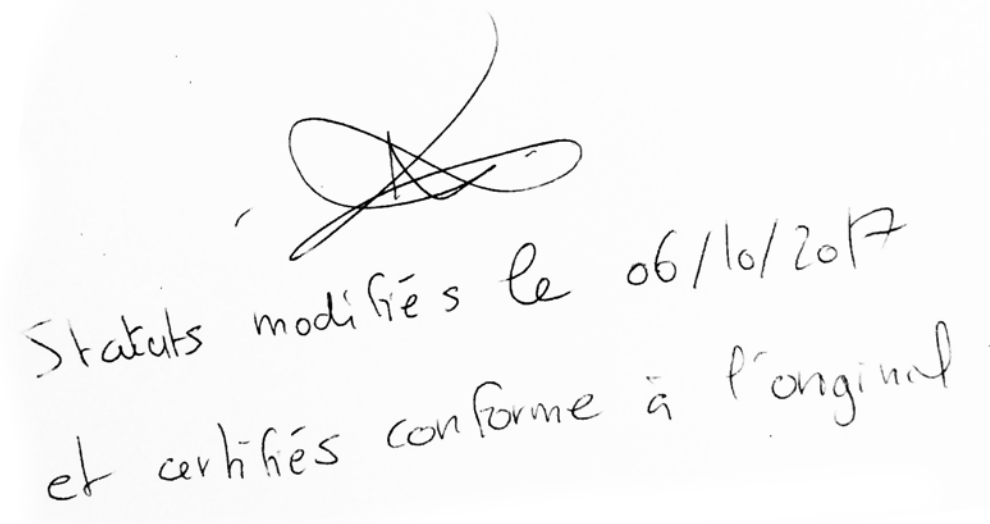 Statuts modifiés le 06/10/2017
et certifiés conforme à l'original